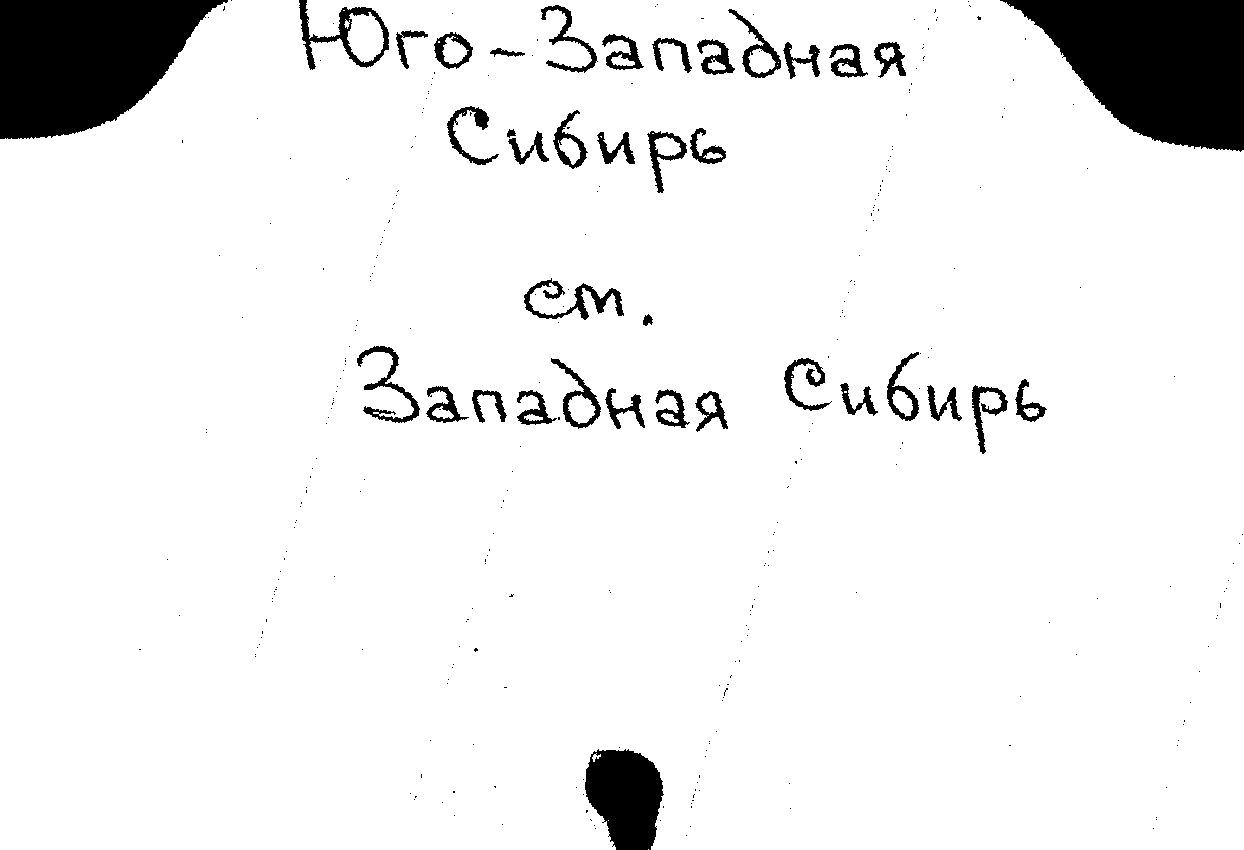 Юго-Западная
Сибирь
см.
Западная Сибирь